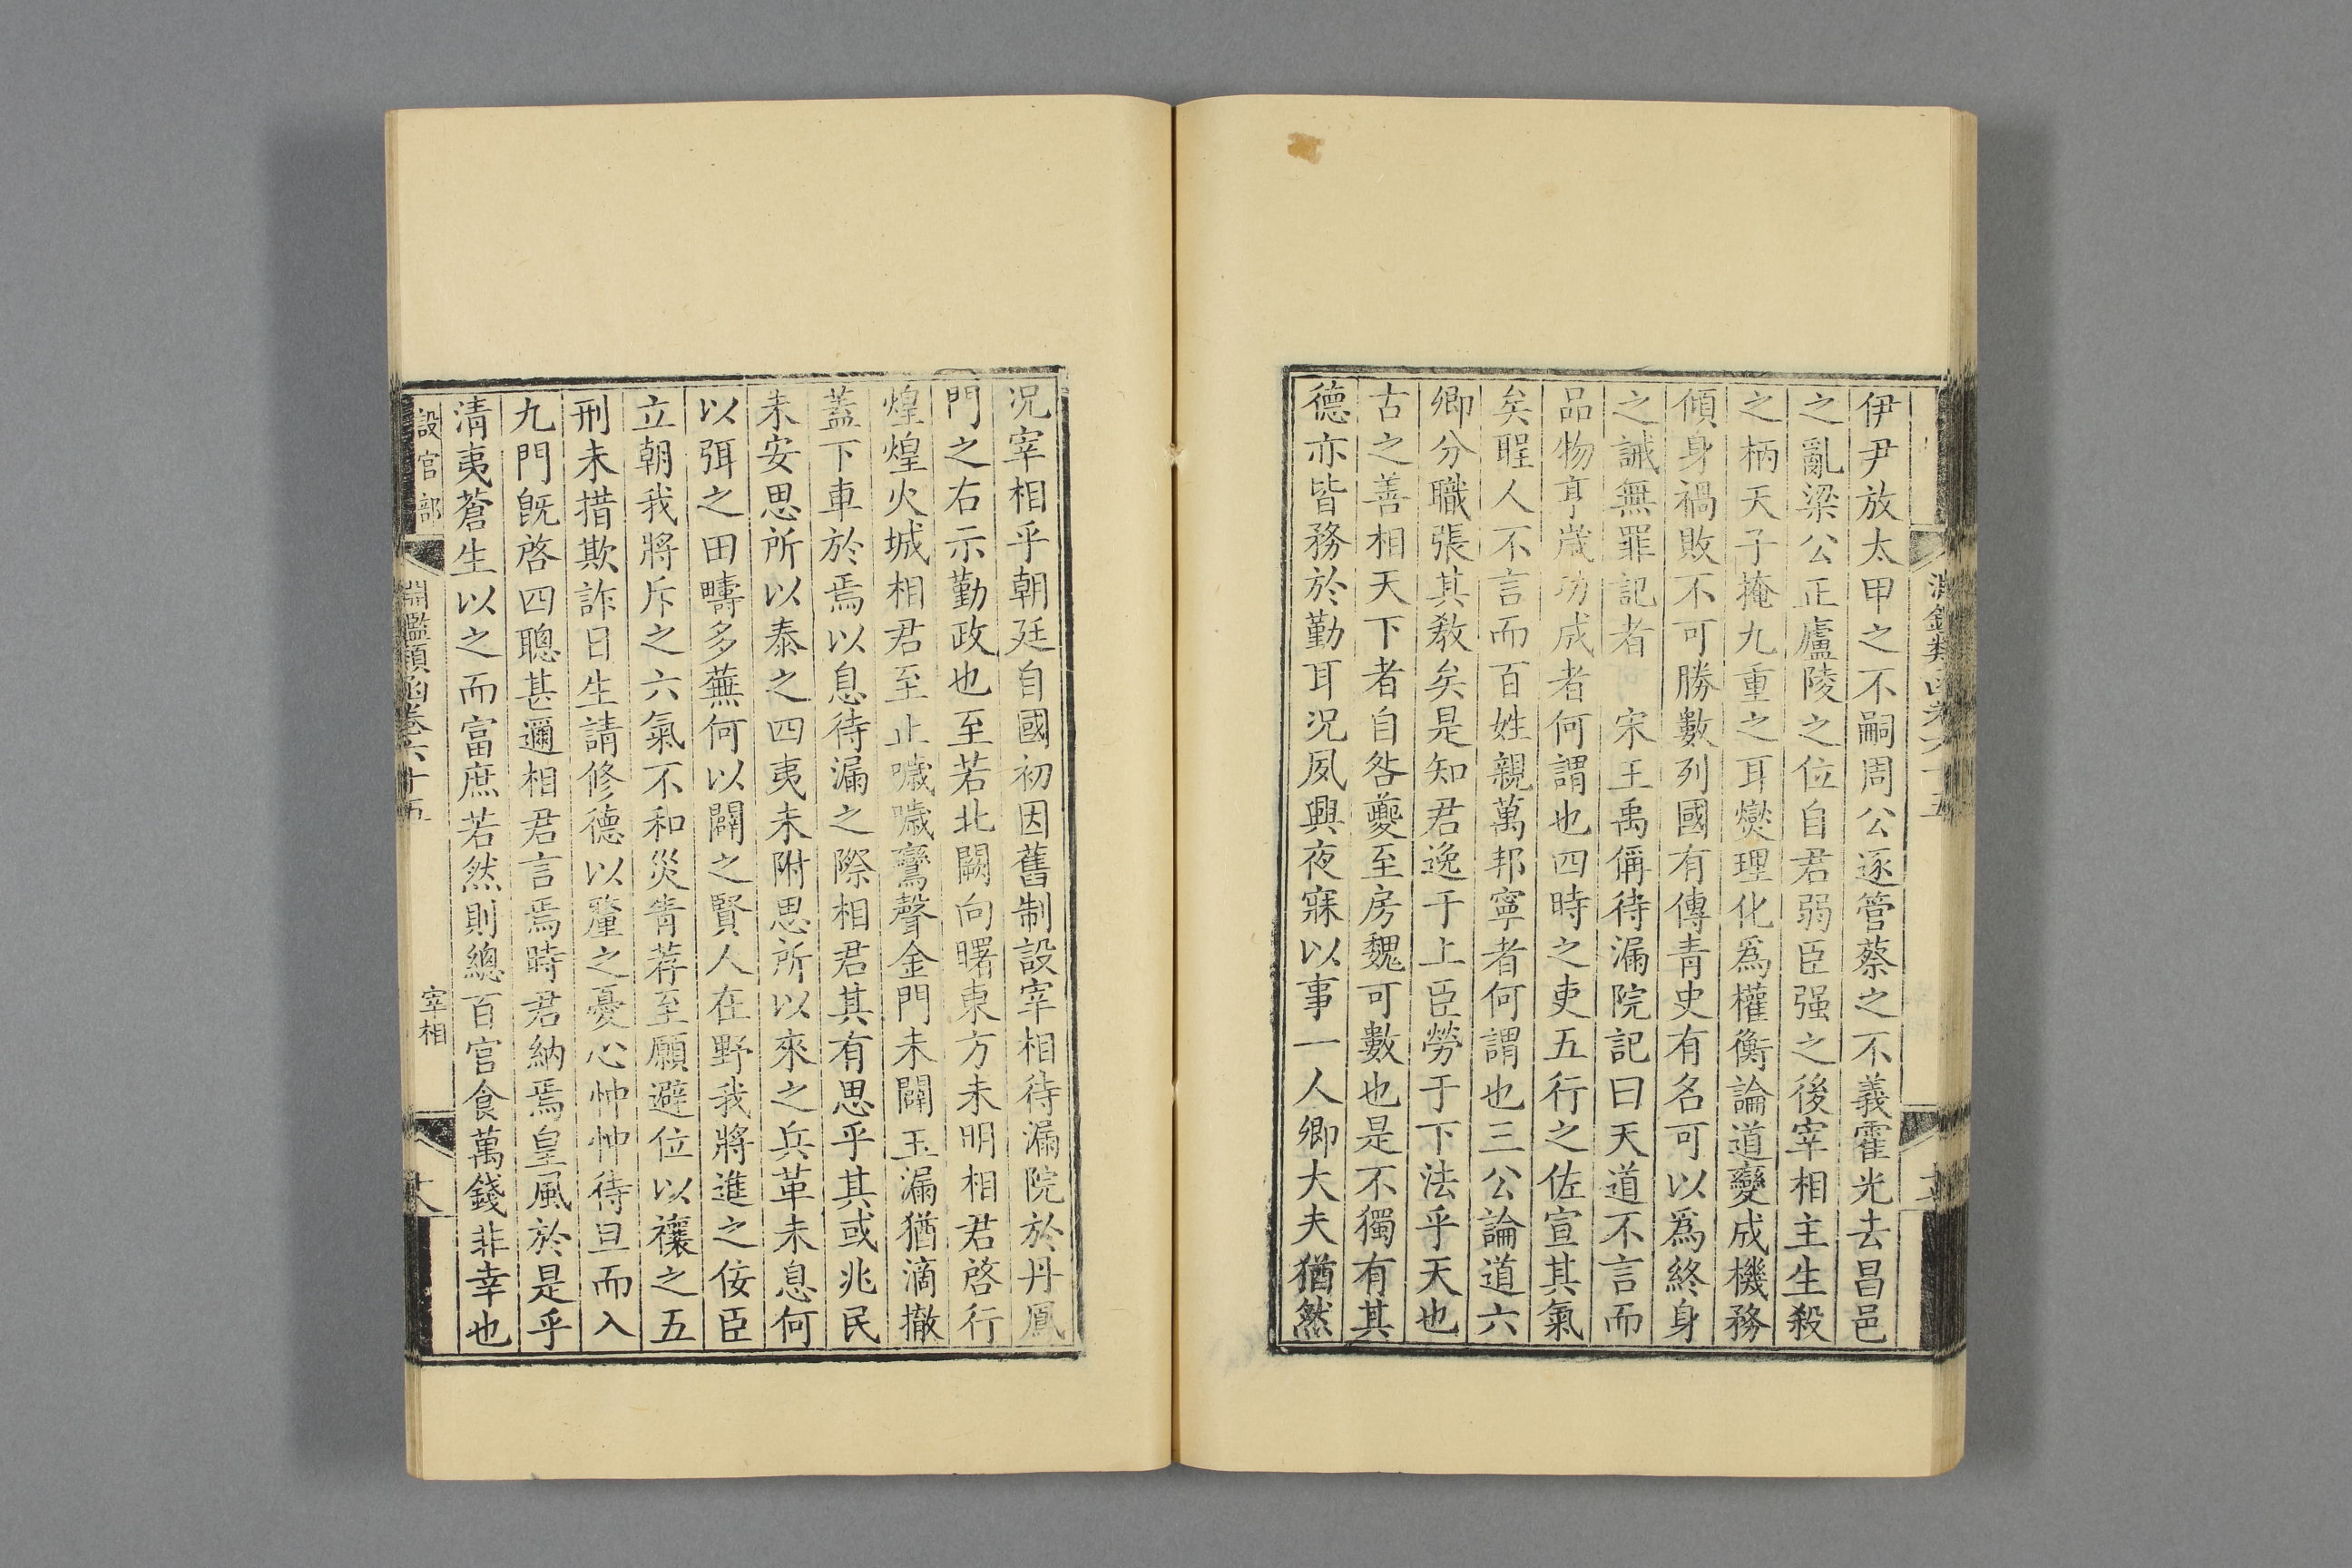 伊尹放太甲之不嗣周公逐管蔡之不義霍光去昌邑
之亂梁公正廬陵之位自君弱臣强之後宰相主生殺
之柄天子掩九重之耳燮理化爲權衡論道變成機務
傾身禍敗不可勝數列國有傳青史有名可以爲終身
之誡無罪記者 宋王禹偁待漏院記曰天道不言而
品物亨歲功成者何謂也四時之吏五行之佐宣其氣
矣聖人不言而百姓親萬邦寧者何謂也三公論道六
卿分職張其教矣是知君逸于上臣勞于下法乎天也
古之善相天下者自咎夔至房魏可數也是不獨有其
德亦皆務於勤耳況夙興夜寐以事一人卿大夫猶然
況宰相乎朝廷自國初因舊制設宰相待漏院於丹鳳
門之右示勤政也至若北闕向曙東方未明相君啓行
煌煌火城相君至止噦噦鸞聲金門未闢玉漏猶滴撤
蓋下車於焉以息待漏之際相君其有思乎其或兆民
未安思所以泰之四夷未附思所以來之兵革未息何
以弭之田疇多蕪何以闢之賢人在野我將進之佞臣
立朝我將斥之六氣不和災眚荐至願避位以禳之五
刑未措欺詐日生請修德以釐之憂心忡忡待旦而入
九門旣啓四聰甚邇相君言焉時君納焉皇風於是乎
清夷蒼生以之而富庶若然則總百官食萬錢非幸也
設官部
淵鑑類函卷六十五
宰相